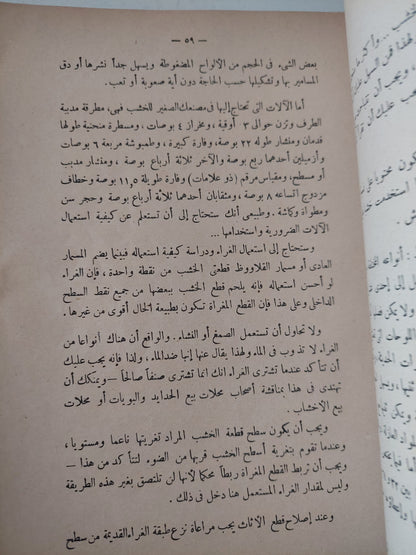 — ٥٩ —
بعض الشىء فى الحجم من الألواح المضغوطة ويسهل جداً نشرها أو دق
المسامير بها وتشكيلها حسب الحاجة دون أية صعوبة أو تعب .
أما الآلات التى تحتاج إليها فى مصنعك الصغير للخشب فهى، مطرقة مدببة
الطرف وتزن حوالى ٣ أوقية ، ومخراز ٤ بوصات ، ومسطرة منحنية طولها
قدمان ومنشار طوله ٢٢ بوصة ، وفارة كبيرة ، وطمبوشة مربعة ٦ بوصات
وأزميلين أحدهما ربع بوصة والآخر ثلاثة أرباع بوصة ، ومنشار مدبب
أو مسطح، ومقياس مرقم (ذو علامات) وفارة طويلة ١١,٥ بوصة وخطاف
مزدوج اتساعه ٨ بوصة ، ومثقابان أحدهما ثلاثة أرباع بوصة وحجر سن
ومطواة وكماشة . وطبيعى أنك ستحتاج إلى أن تستعلم عن كيفية استعمال
الآلات الضرورية واستخدامها ...
وستحتاج إلى استعمال الغراء ودراسة كيفية استعماله فبينما يضم المسمار
العادى أو مسمار القلاووظ قطعتى الخشب من نقطة واحدة ، فإن الغراء
لو أحسن استعماله فإنه يلحم قطع الخشب ببعضها من جميع نقط السطح
الداخلى وعلى هذا فإن القطع المغراة تكون بطبيعة الحال أقوى من غيرها .
ولا تحاول أن تستعمل الصمغ أو النشاء . والواقع أن هناك أنواعا من
الغراء لا تذوب فى الماء ولهذا يقال عنها إنها ضد الماء، ولذا فإنه يجب عليك
أن تتأكد عندما تشترى الغراء انك انما تشترى صنفاً صالحاً — ويمكنك أن
تهتدى فى هذا بمناقشة أصحاب محلات بيع الحدايد والبويات أو محلات
بيع الاخشاب .
ويجب أن يكون سطح قطعة الخشب المراد تغريتها ناعما ومستويا ،
وعندما تقوم بتغرية أسطح الخشب قربها من الضوء لتتأكد من هذا —
ويجب أن تربط القطع المغراة ربطاً محكما لأنها لن تلتصق بغير هذه الطريقة
وليس لمقدار الغراء المستعمل هنا دخل فى ذلك .
وعند إصلاح قطع الاثاث يجب مراعاة نزع طبقة الغراء القديمة من سطح